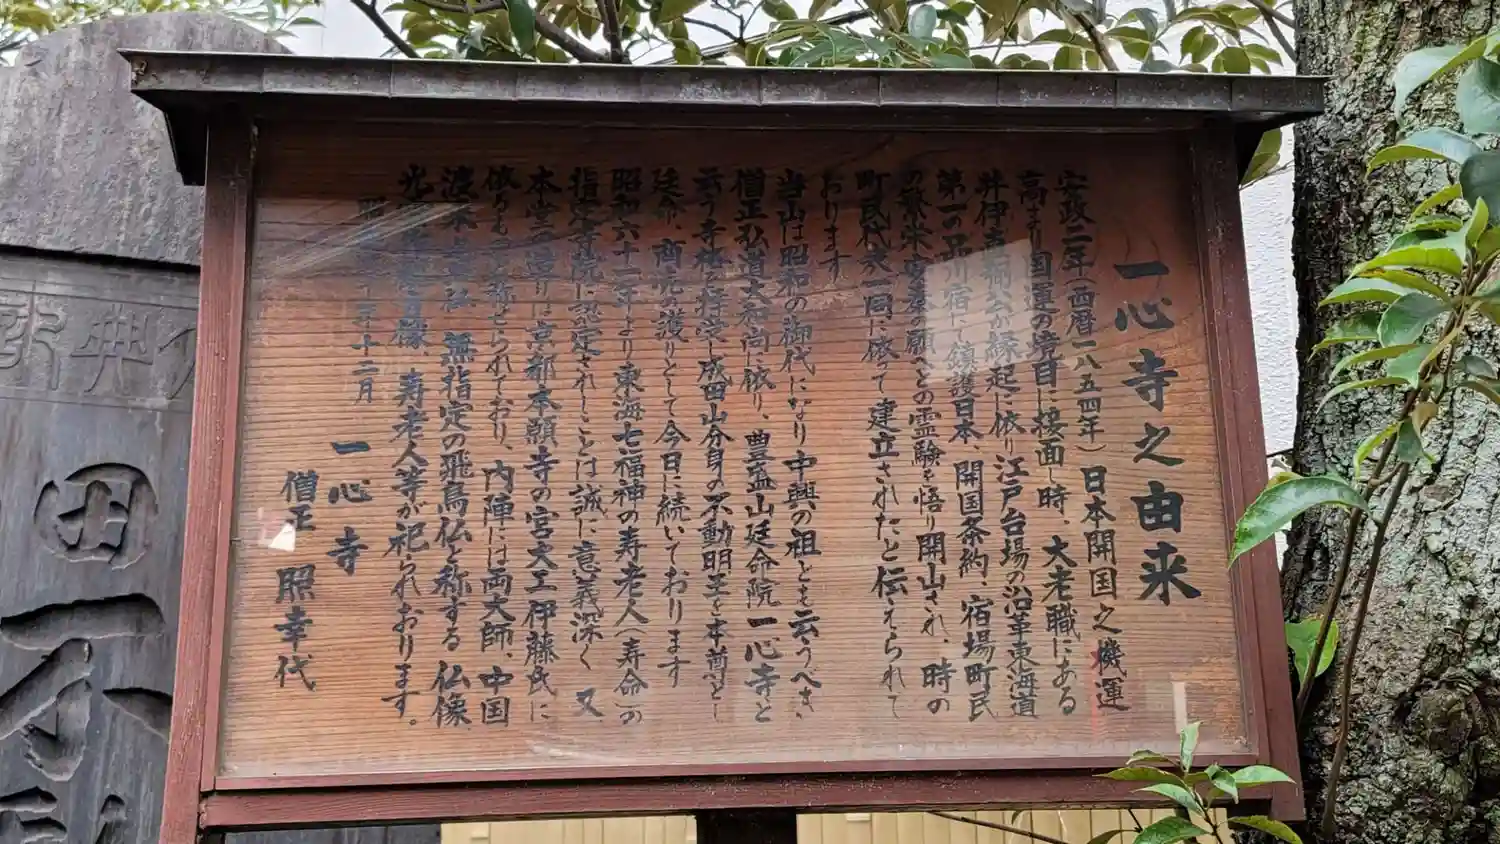 一心寺之由来
安政二年(西暦一八五四年)日本開国之機運
高まり国運の境目に接面し時、大老職にある
井伊直弼公が縁起に依り江戸台場の沿革東海道
第一の品川宿に鎮護日本、開国条約、宿場町民
の繁栄安泰の願との霊験を悟り開山され、時の
町民代表一同に依って建立されたと伝えられて
おります
当山は昭和の御代になり中興の祖とも云うべき
僧正弘道大和尚に依り、豊盛山延命院一心寺と
云う寺格を拝受、成田山分身の不動明王を本尊とし
延命、商売の護りとして今日に続いております
昭和六十二年より東海七福神の寿老人(寿命)の
指定寺院に設定されしことは誠に意義深く又
本堂の造りは京都本願寺の宮大工伊藤氏に
依るものと称せられており、内陣には両大師、中国
渡来 無指定の飛鳥仏と称する仏像、
像、寿老人等が祀られおります。
十二月
一心寺
僧正 照幸代
田
不